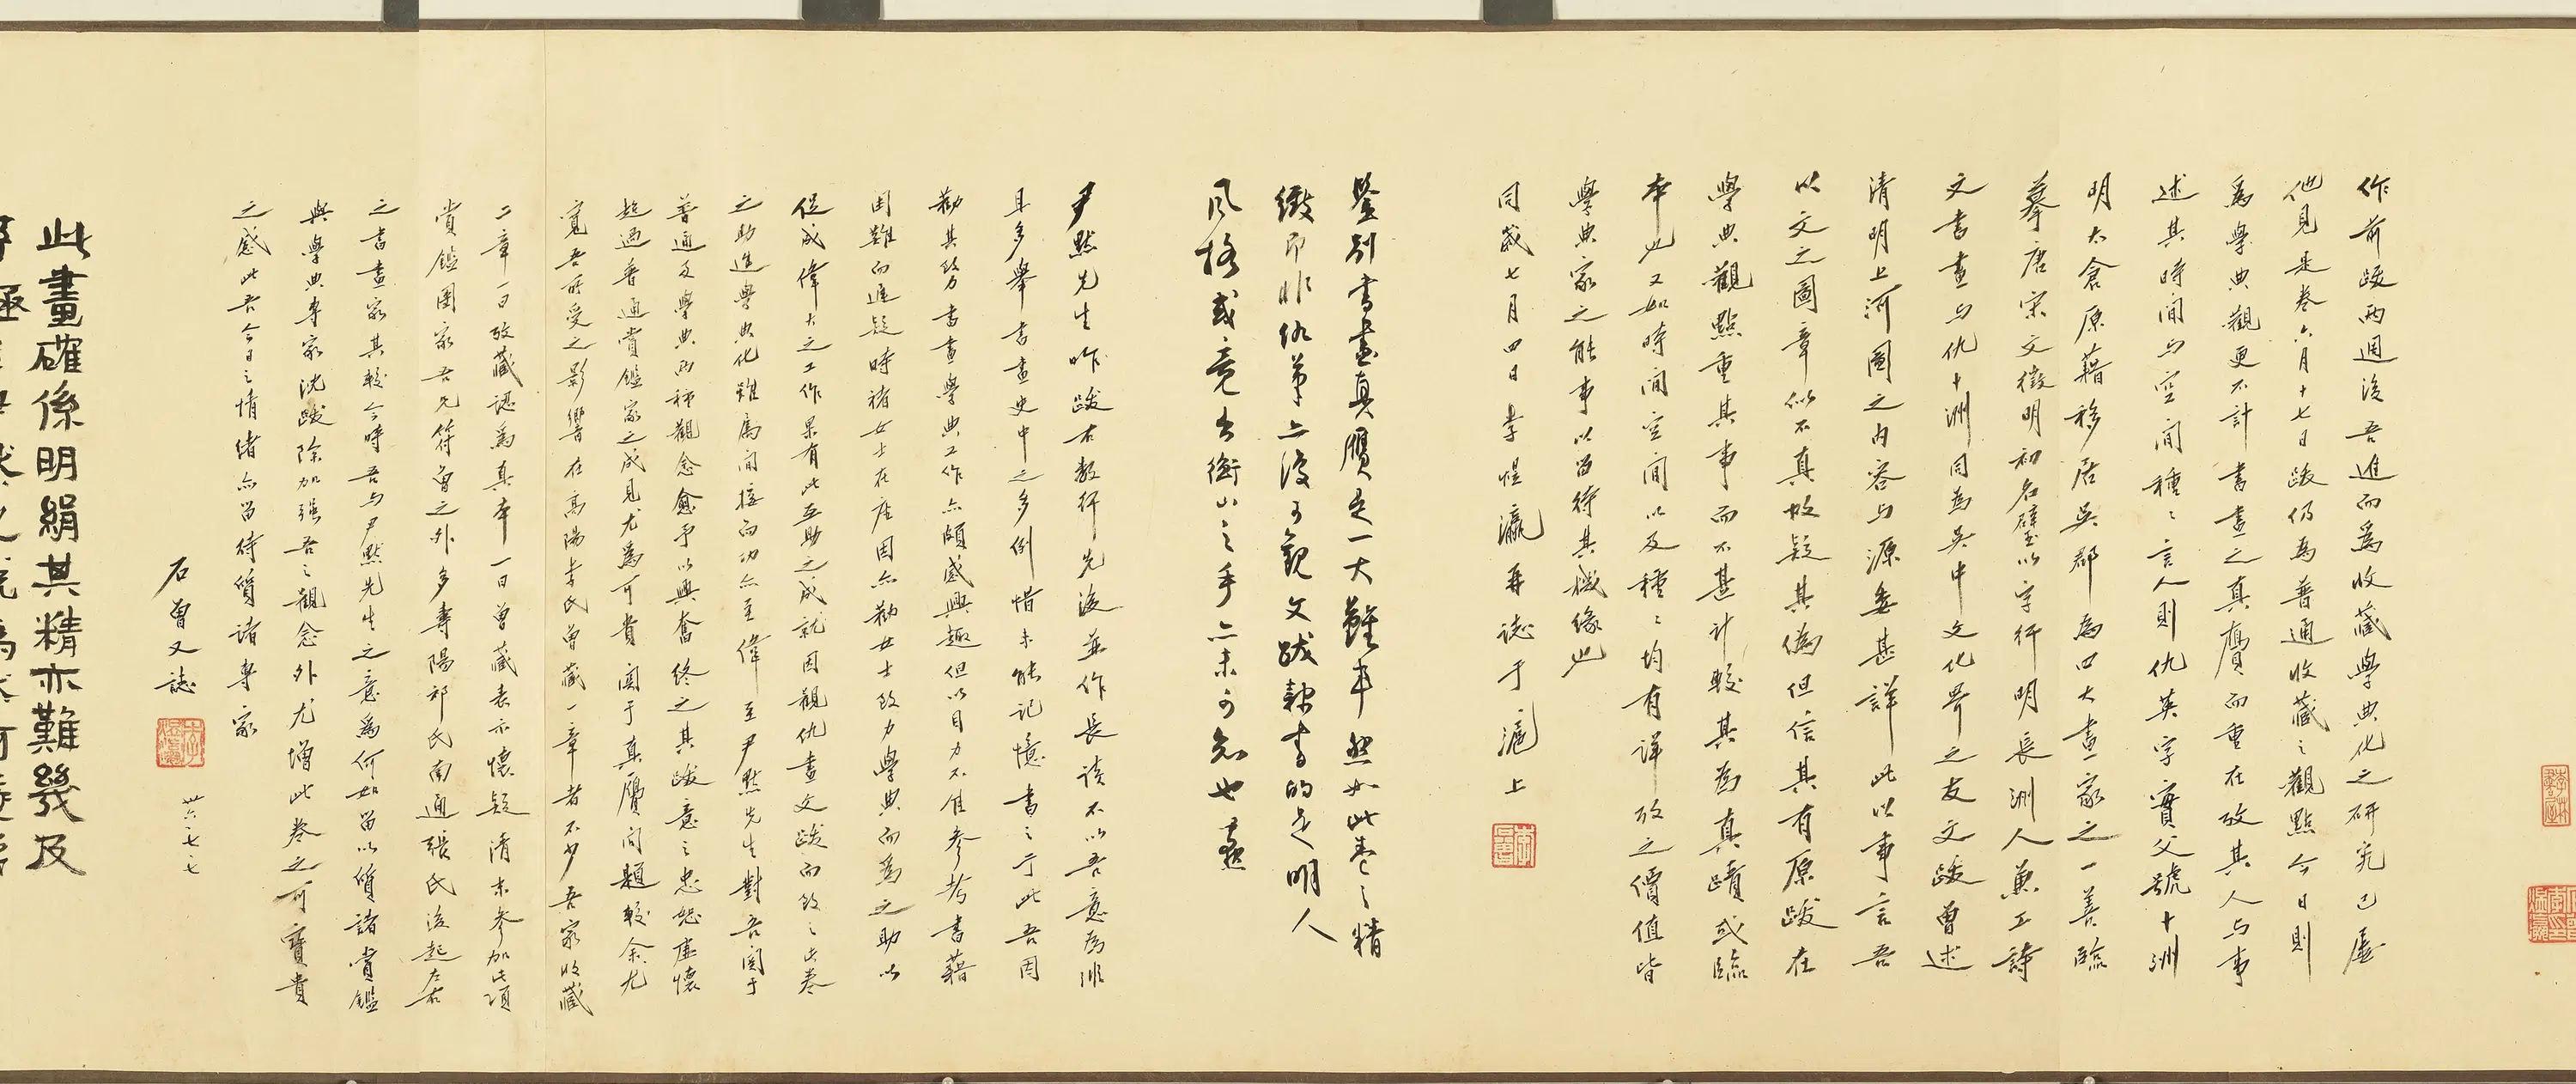 作前跋兩週後吾進而為收藏學典化之研究已屢
他見是卷六月十七日跋仍為普通收藏之觀點今日則
為學典觀更不計書畫之真贋而重在攷其人与事
述其時間与空間種〻言人則仇英字實父號十洲
明太倉原藉移居吳郡為四大畫家之一善臨
摹唐宋文徵明初名璧以字行明長洲人兼工詩
文書畫与仇十洲同為吳中文化界之友文跋曾述
清明上河圖之內容与源委甚詳此以事言吾
以文之圖章似不真故疑其偽但信其有原跋在
學典觀點重其事而不甚計較其為真蹟或臨
本也又如時間空間以及種〻均有詳攷之價值皆
學典家之能事以留待其機緣也
同歲七月四日李煜瀛再誌于滬上
鑒別書畫真贋是一大難事然如此卷之精
緻即非仇筆亦復可觀文跋隸書的是明人
風格或竟出衡山之手亦未可知也 默
尹默先生昨跋右數行先後並作長談不以吾意為非
且多舉書畫史中之多例惜未能記憶書之于此吾因
勸其致力書畫學典工作亦頗感興趣但以目力不佳參考書藉
困難而遲疑時褚女士在座因亦勸女士致力學典而為之助以
促成偉大之工作果有此互助之成就因觀仇畫文跋而致之此卷
之助進學典化雖屬間接而功亦至偉至尹默先生對吾關于
普通及學典兩種觀念愈予以興奮終之其跋意之忠恕虛懷
超過普通賞鑑家之成見尤為可貴關于真贋問題較余尤
寬吾所受之影響在高陽李氏曾藏一章者不少吾家收藏
二章一曰攷藏認為真本一曰曾藏表示懷疑清末參加此項
賞鑑團家吾兄符曾之外多壽陽祁氏南通張氏後起左右
之書畫家其較今時吾与尹默先生之意為何如留以質諸賞鑑
與學典專家沈跋除加強吾之觀念外尤增此卷之可寶貴
之感此吾今日之情緒亦留待質諸專家
石曾又誌
卅六七七
此畫確係明絹其精亦難幾及